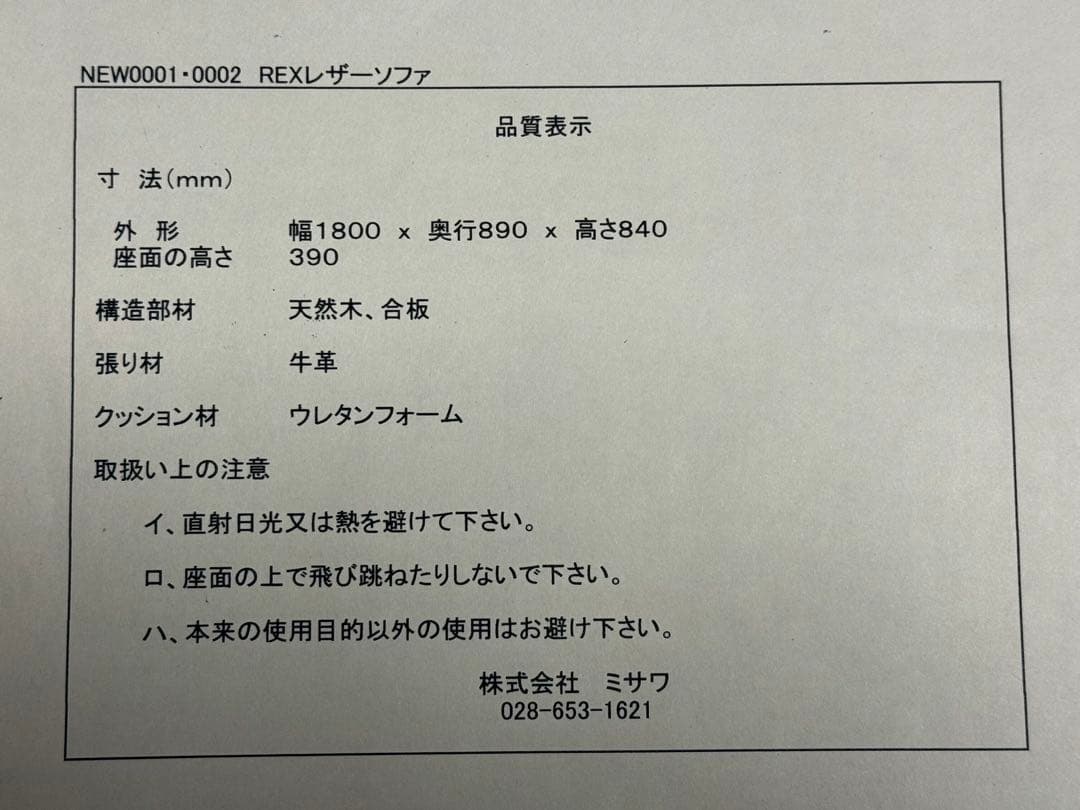 NEW0001・0002 REXレザーソファ
品質表示
寸 法(mm)
外 形 幅1800 x 奥行890 x 高さ840
座面の高さ 390
構造部材 天然木、合板
張り材 牛革
クッション材 ウレタンフォーム
取扱い上の注意
イ、直射日光又は熱を避けて下さい。
ロ、座面の上で飛び跳ねたりしないで下さい。
ハ、本来の使用目的以外の使用はお避け下さい。
株式会社 ミサワ
028-653-1621